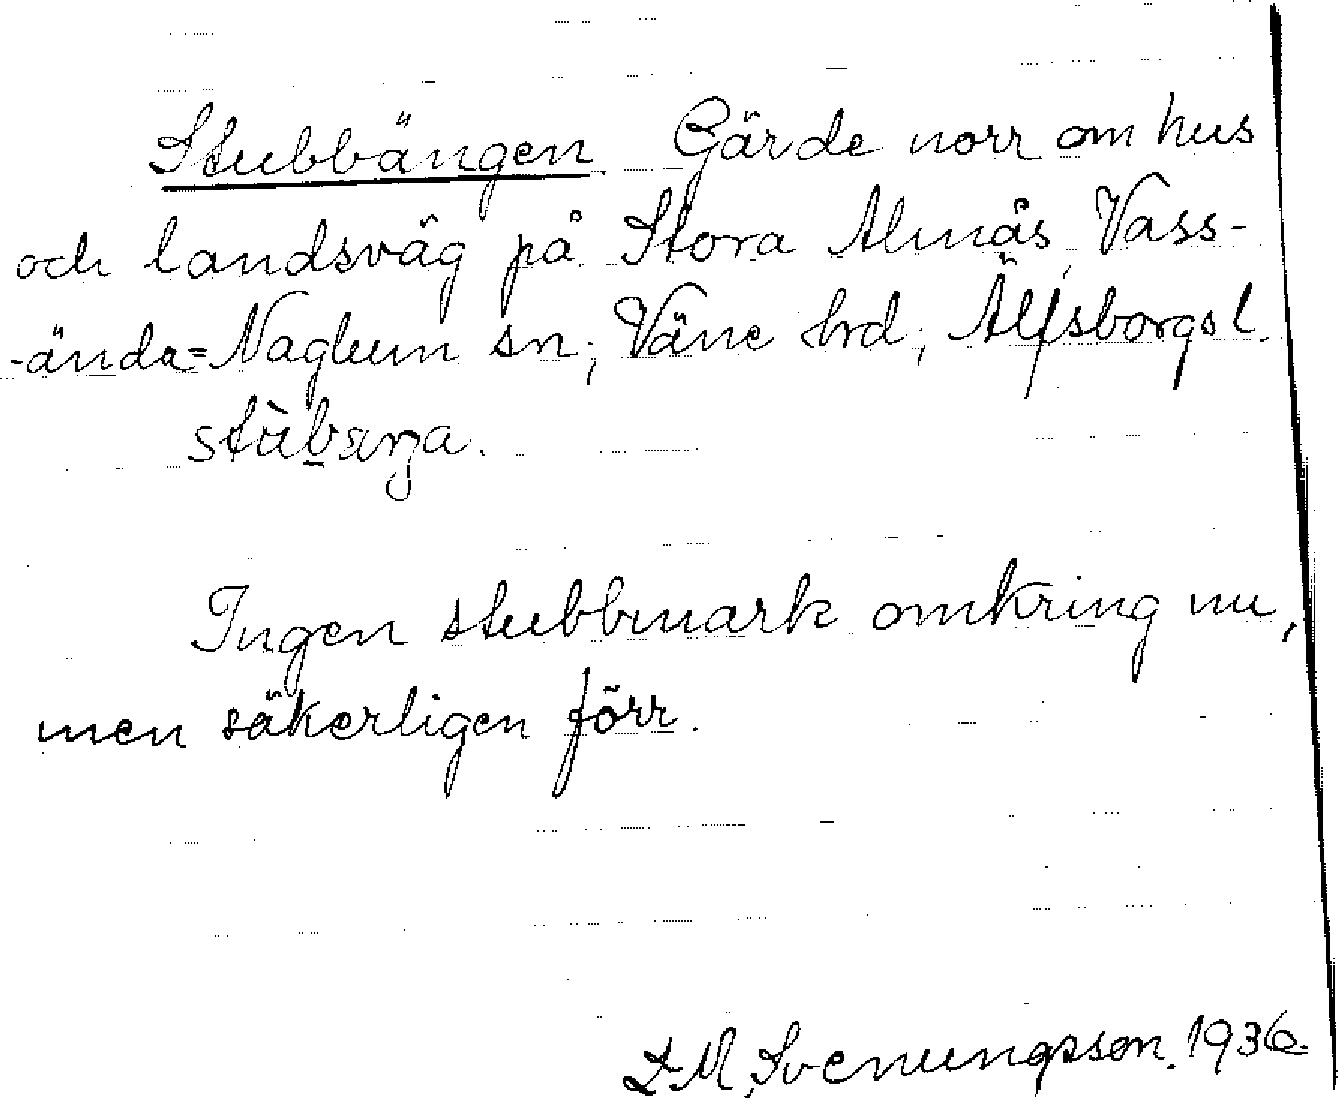 Stubbängen. Gärde norr om hus
och landsväg på Stora Almås, Vass-
-ända=Naglum sn; Väne hrd, Älfsborgs l.

Ingen stubbmark omkring nu,
men säkerligen förr.
Svenungsson. 1936.